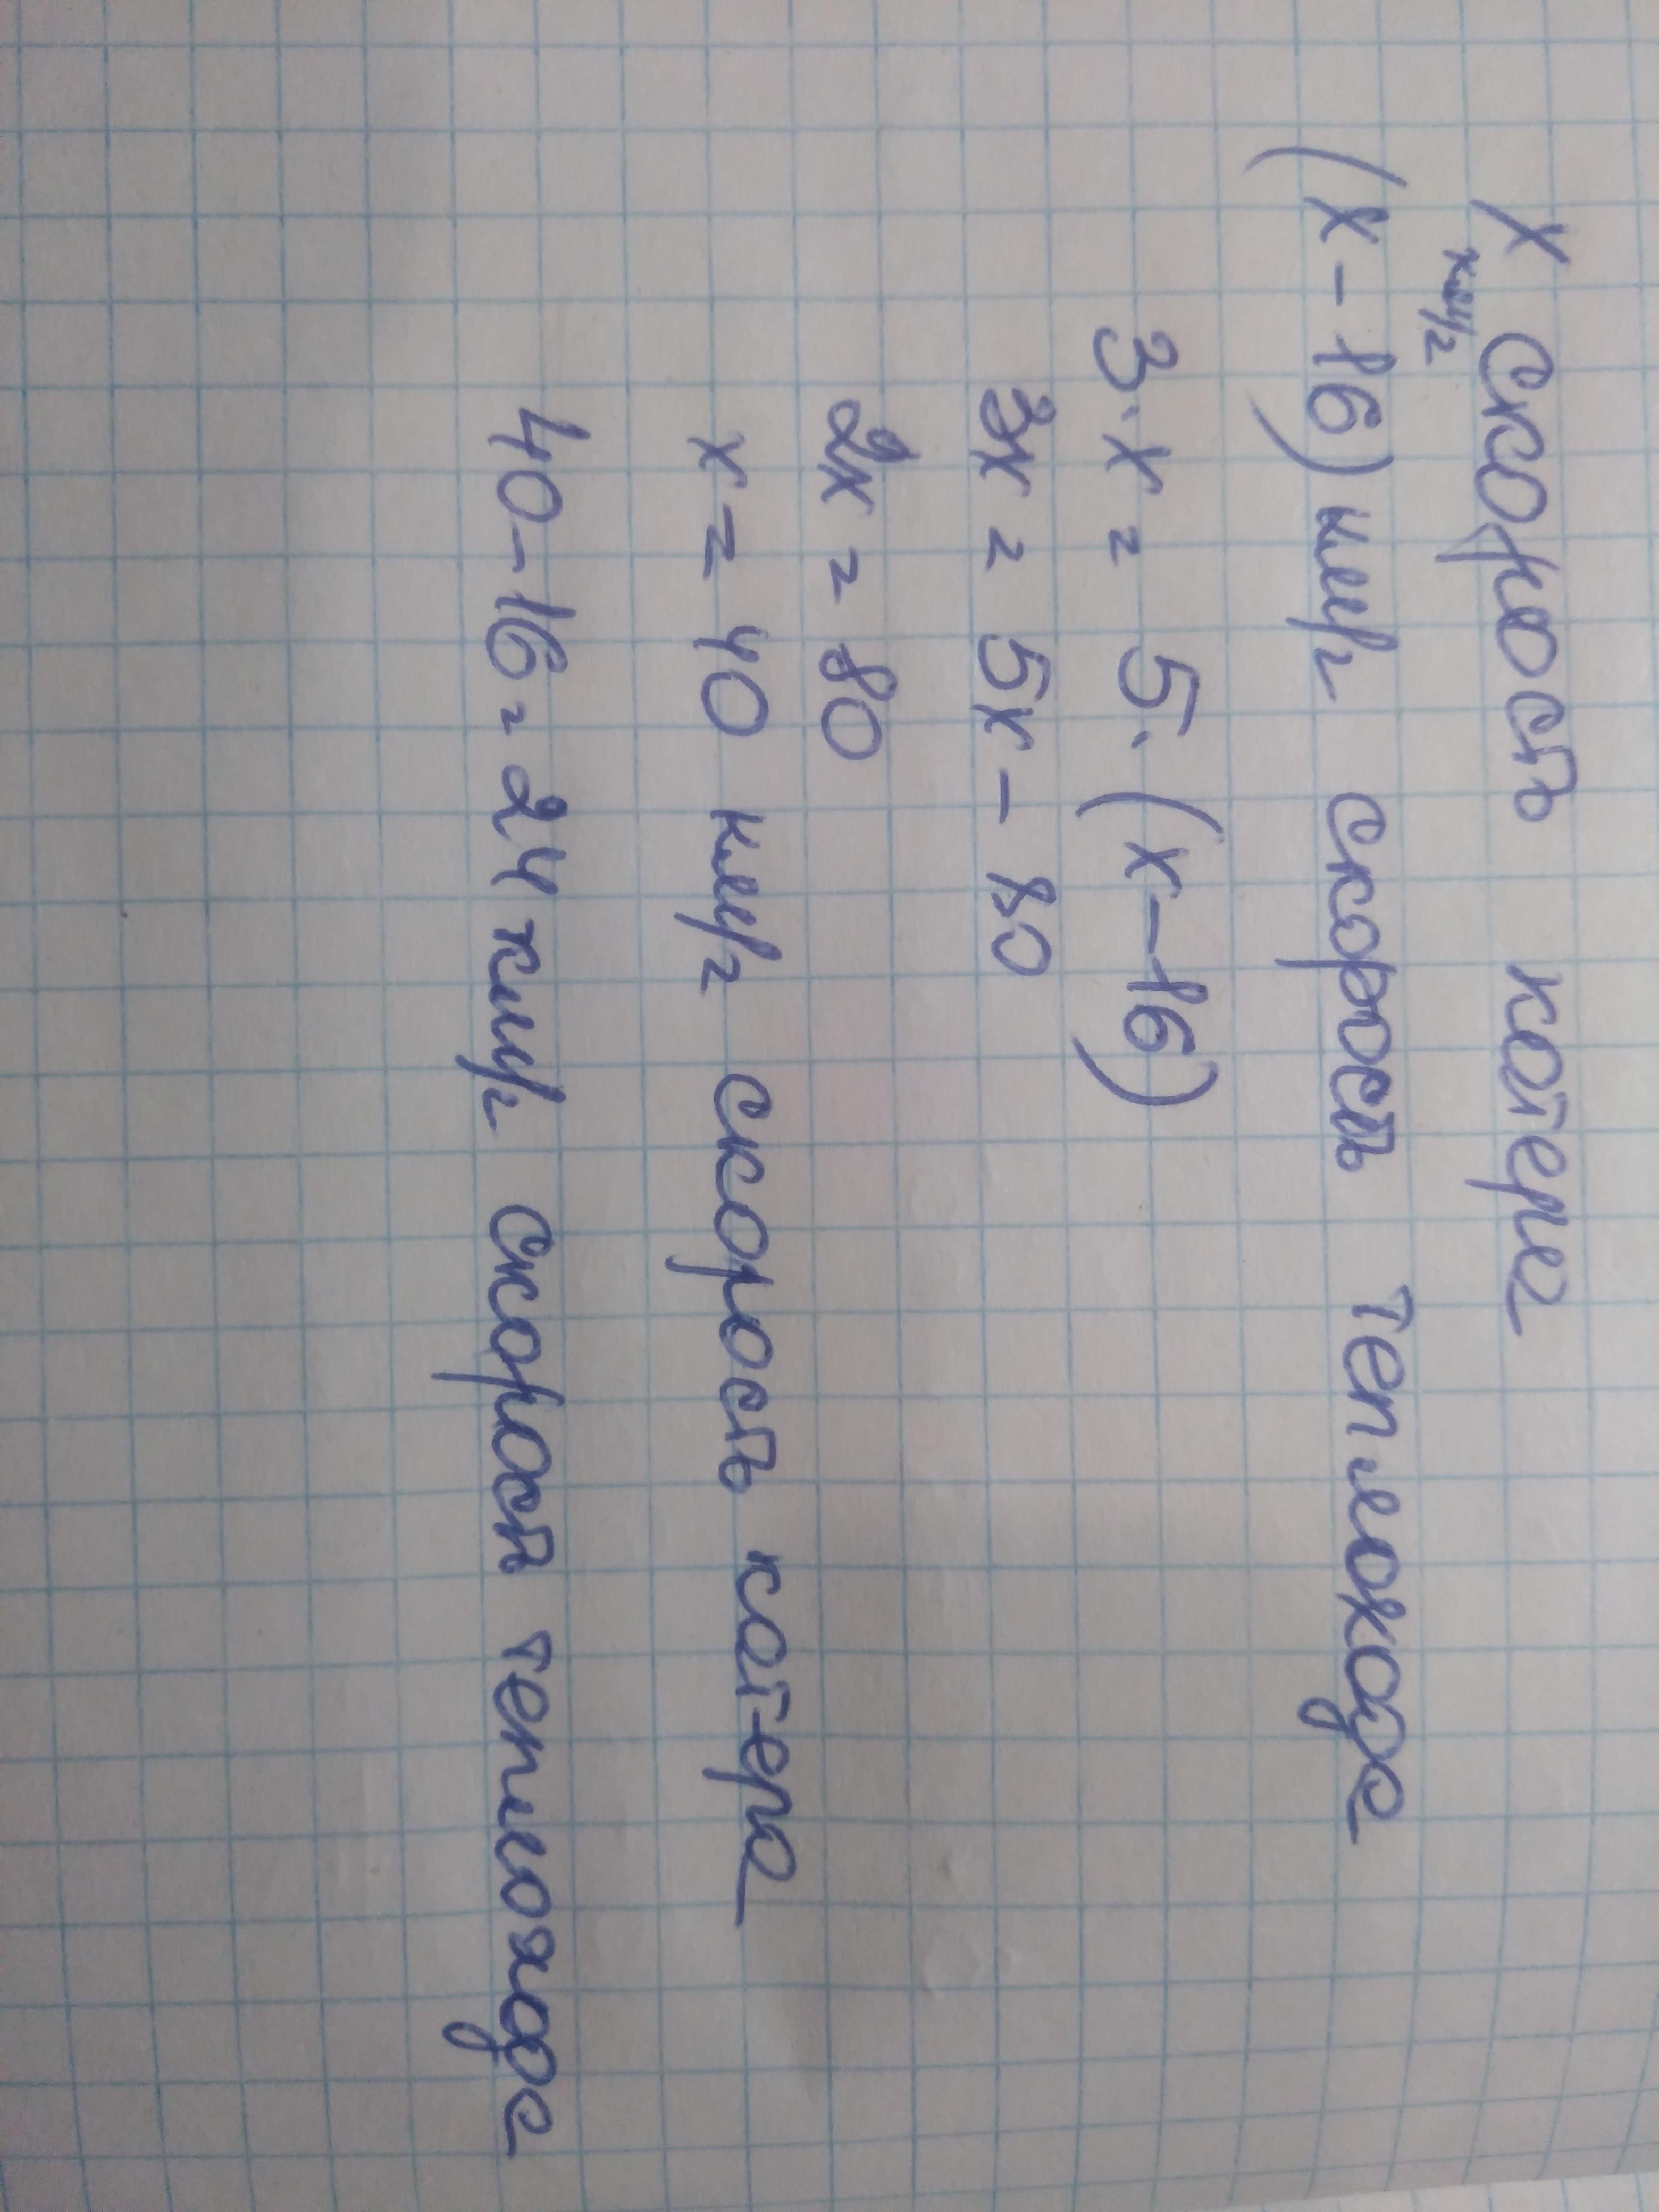 х км/ч скорость катера
(х-16) км/ч скорость теплохода
3·х = 5·(х-16)
3х = 5х - 80
2х = 80
х = 40 км/ч скорость катера
40-16=24 км/ч скорость теплохода